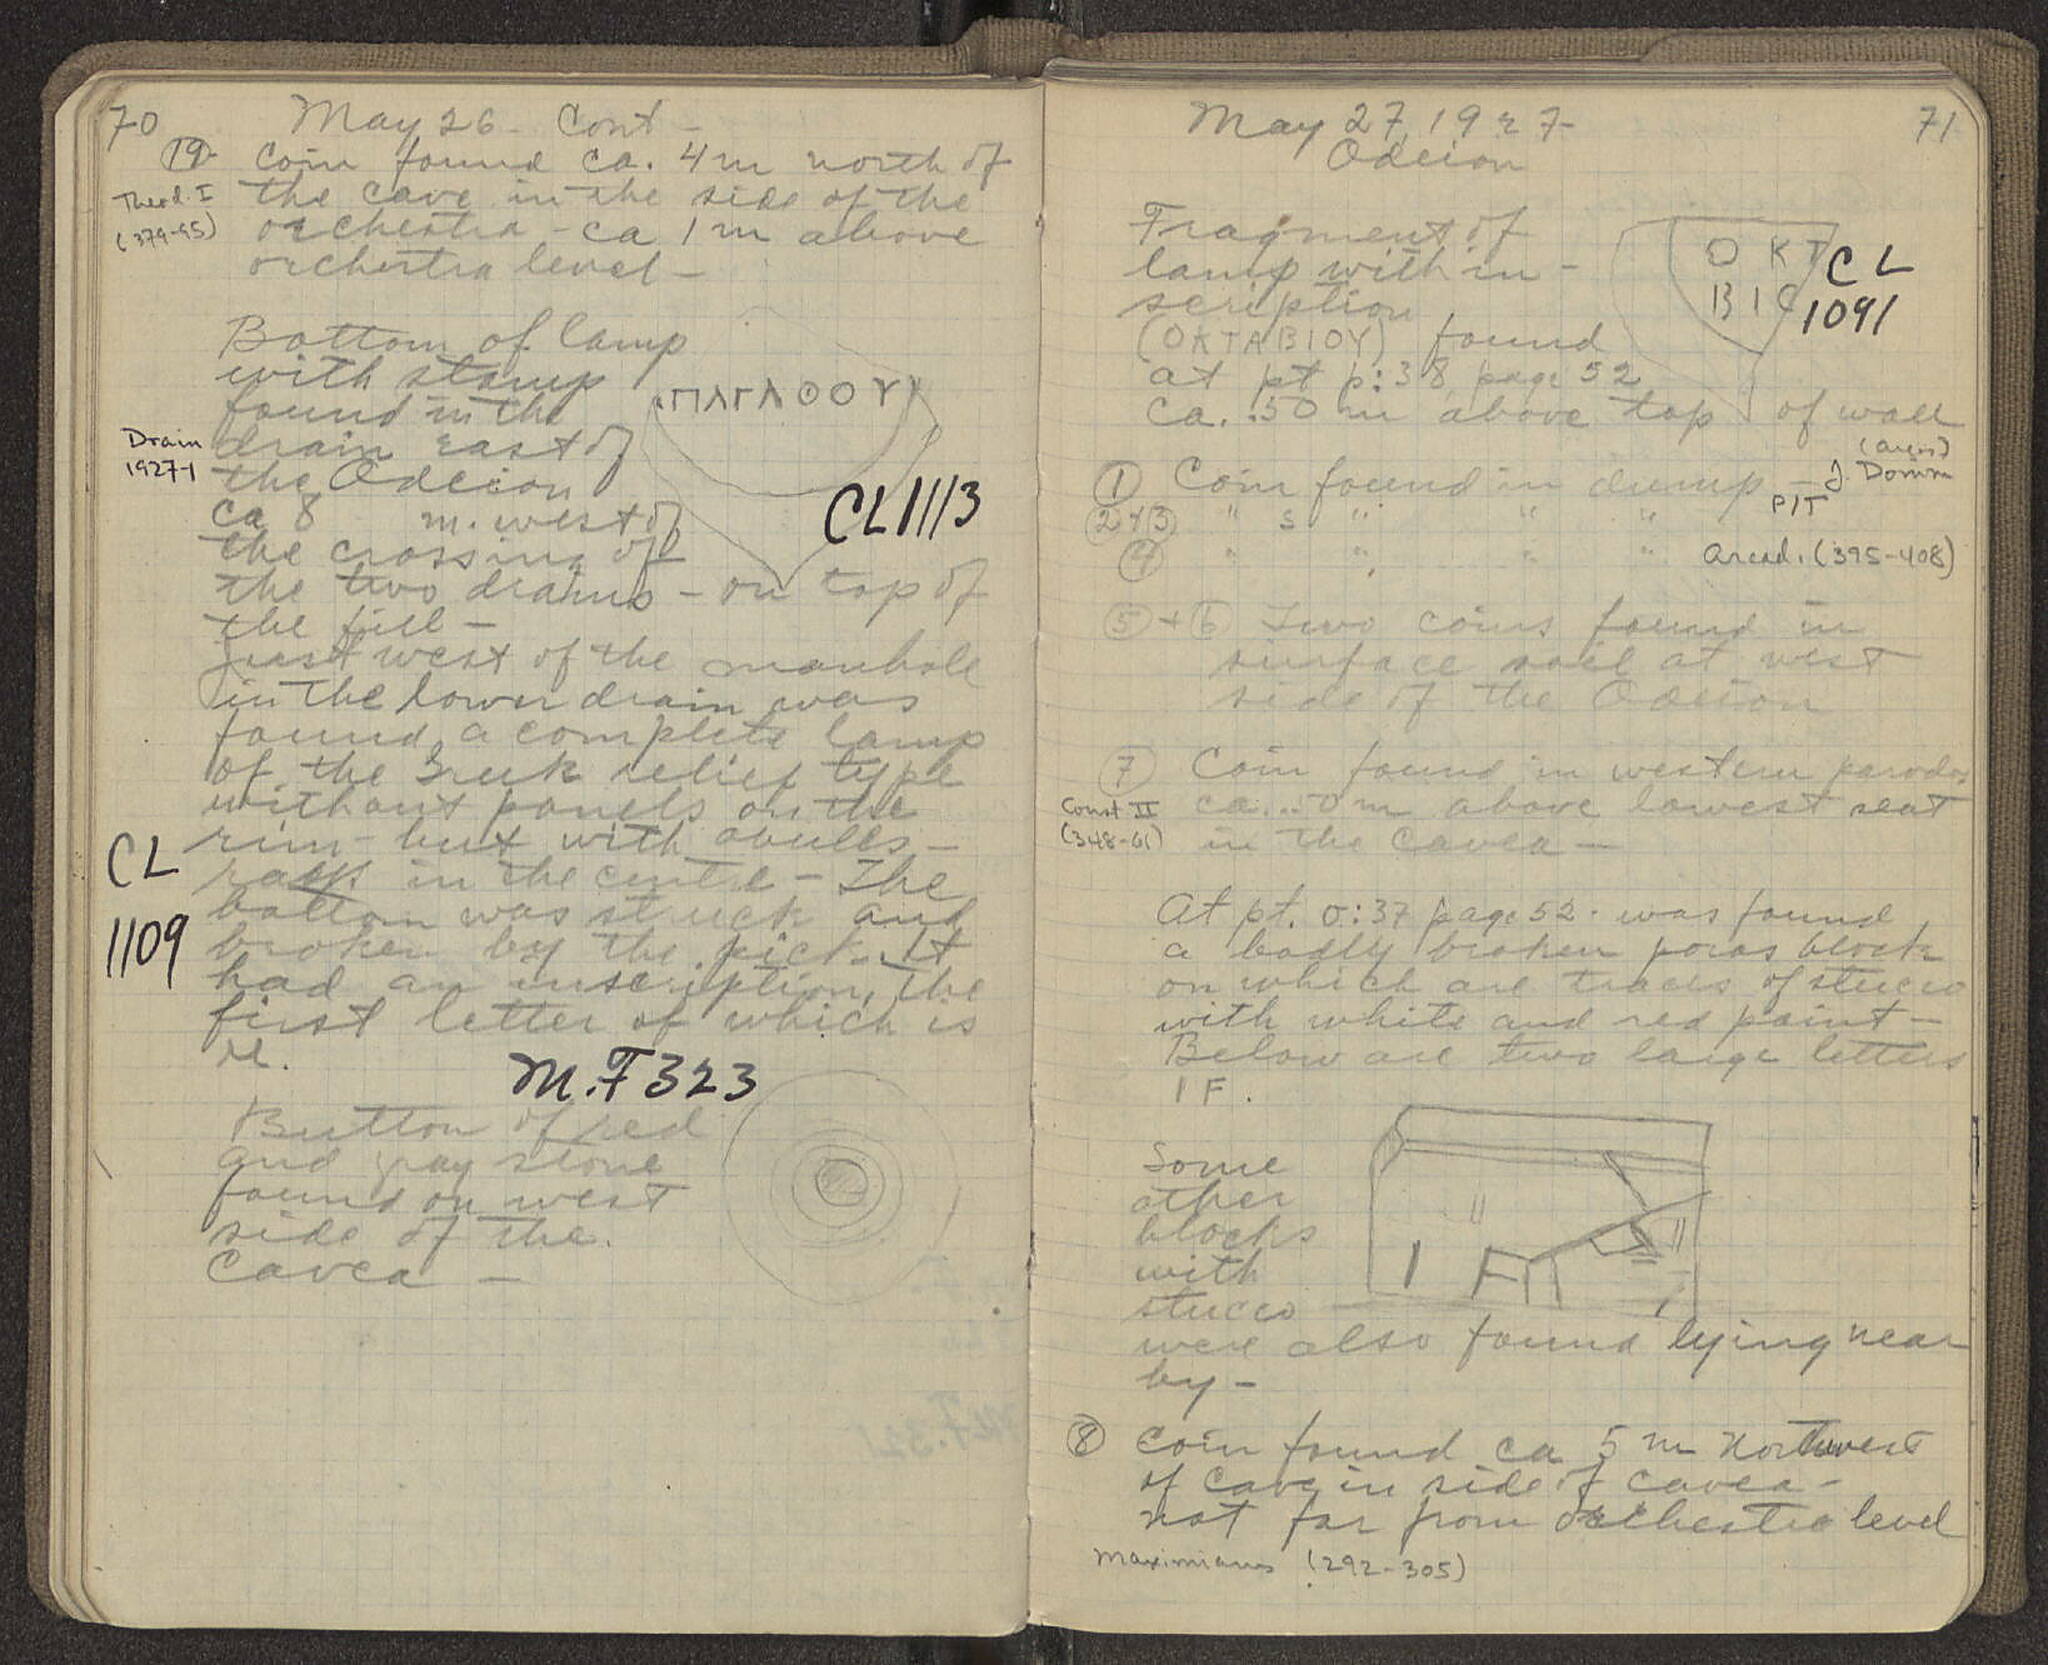 70
May 26 - Cont -
19 Coin found ca. 4 m north of
Theod. I
(379-95)
the cave in the side of the
orchestra - ca 1 m above
orchestra level -
Bottom of lamp
with stamp
ΠΑΓΑΘΟΥ
found in the
Drain
1927-1
drain east of
the Odeion
ca 8 m. west of
CL 1113
the crossing of
the two drains - on top of
the fill -
Just west of the manhole
in the lower drain was
found a complete lamp
of the Greek relief type
without panels on the
rim - but with ovules -
CL
1109
in the center - The
bottom was struck and
broken by the pick. It
had an inscription, the
first letter of which is
M.F 323
Button of red
and gray stone
found on west
side of the
Cavea -
May 27, 1927 -
71
Odeion
Fragment of
lamp with in-
scription
(ΟΚΤΑΒΙΟΥ) found
Ο ΚΤ
Β Ι Ο
CL
1091
at pt p:38 page 52
ca. .50 m above top of wall
(1) Coin found in dump -
J. Domn
PIT
(2+3) " s " " "
(4) " " " " Arcad. (395-408)
(5)+(6) Two coins found in
surface soil at west
side of the Odeion
(7) Coin found in western parodos
Const II
(348-61)
ca. .50 m above lowest seat
in the cavea -
At pt. o:37 page 52. was found
a badly broken poros block
on which are traces of stucco
with white and red paint -
Below are two large letters
I F.
Some
other
blocks
with
stucco
I F
were also found lying near
by -
(8) Coin found ca 5 m Northwest
of cave in side of cavea -
not far from orchestra level
Maximianus (292-305)